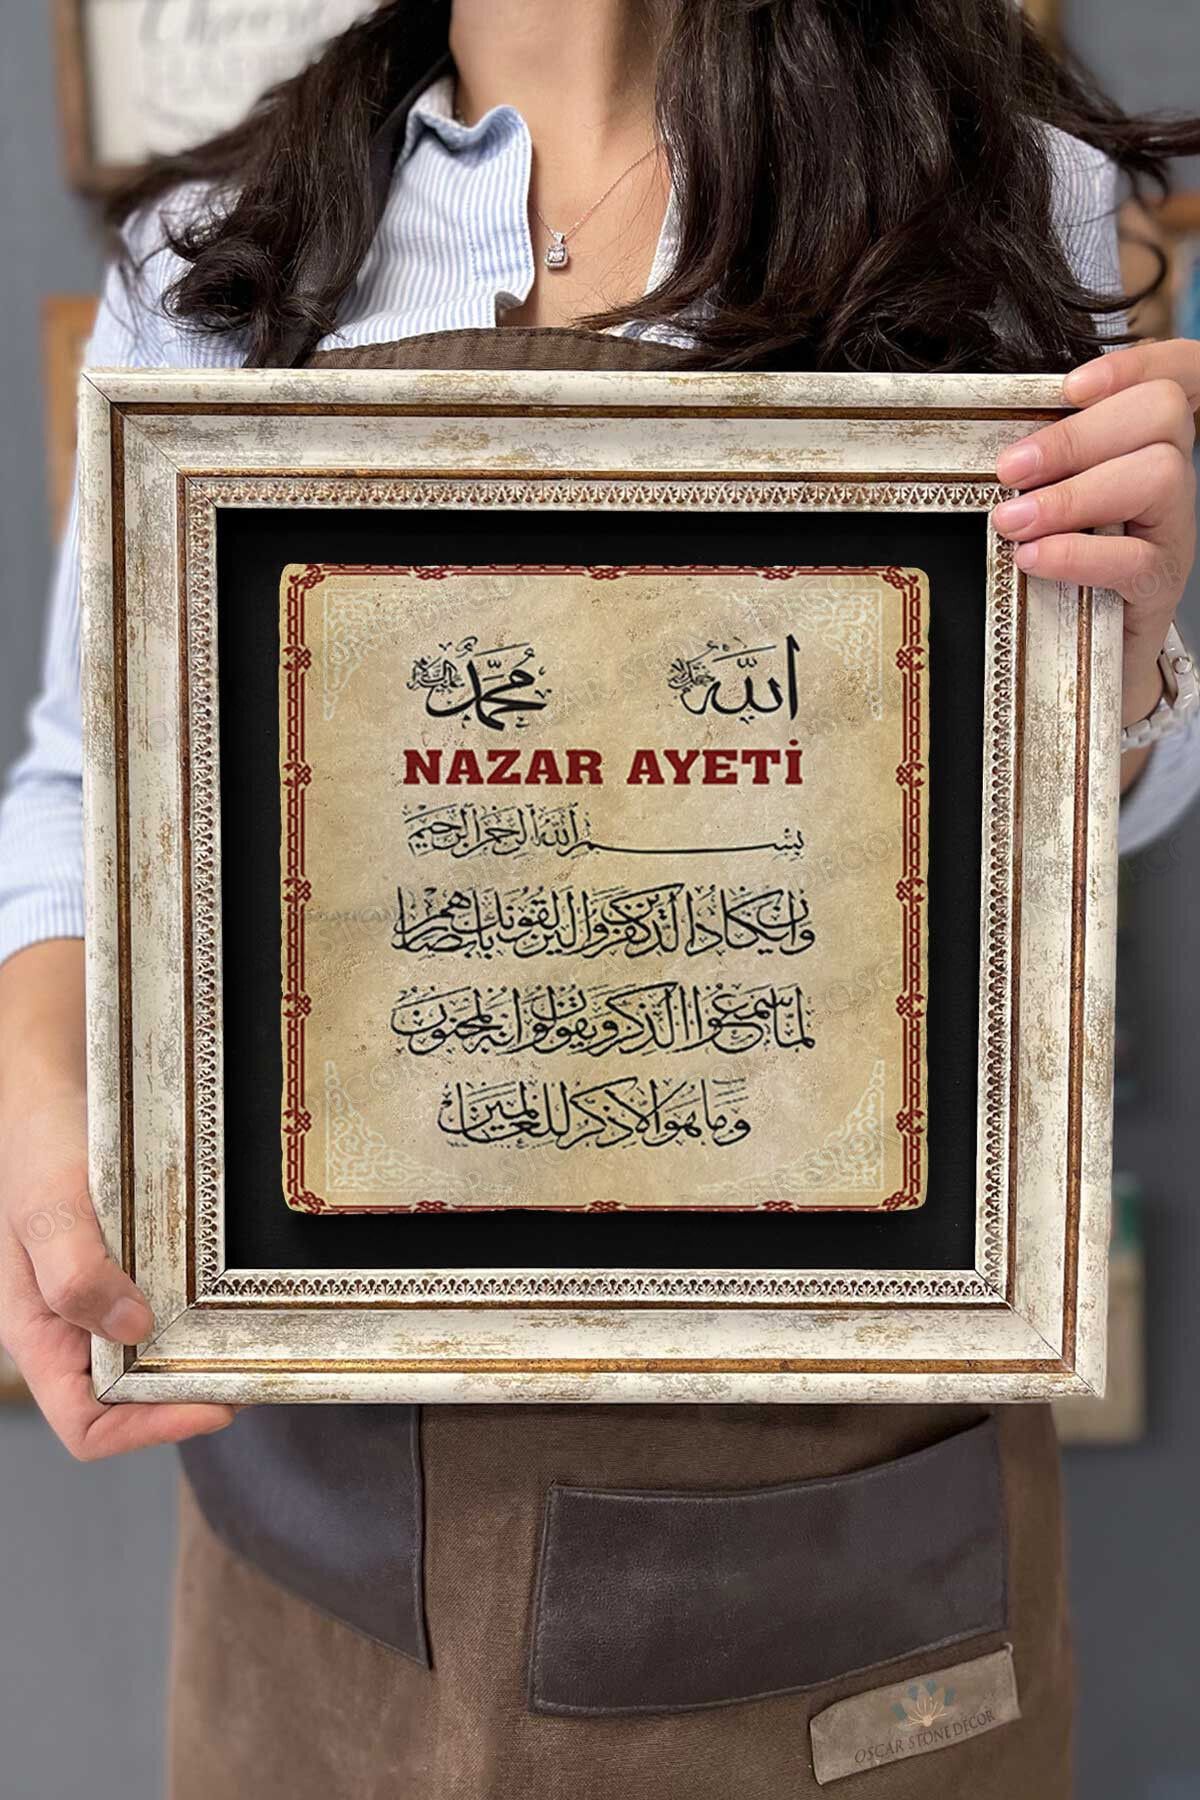 الله جل جلاله محمد عليه السلام
NAZAR AYETİ
بسم الله الرحمن الرحيم
وان يكاد الذين كفروا ليزلقونك بابصارهم
لما سمعوا الذكر ويقولون انه لمجنون
وما هو الا ذكر للعالمين
OSCAR STONE DECOR